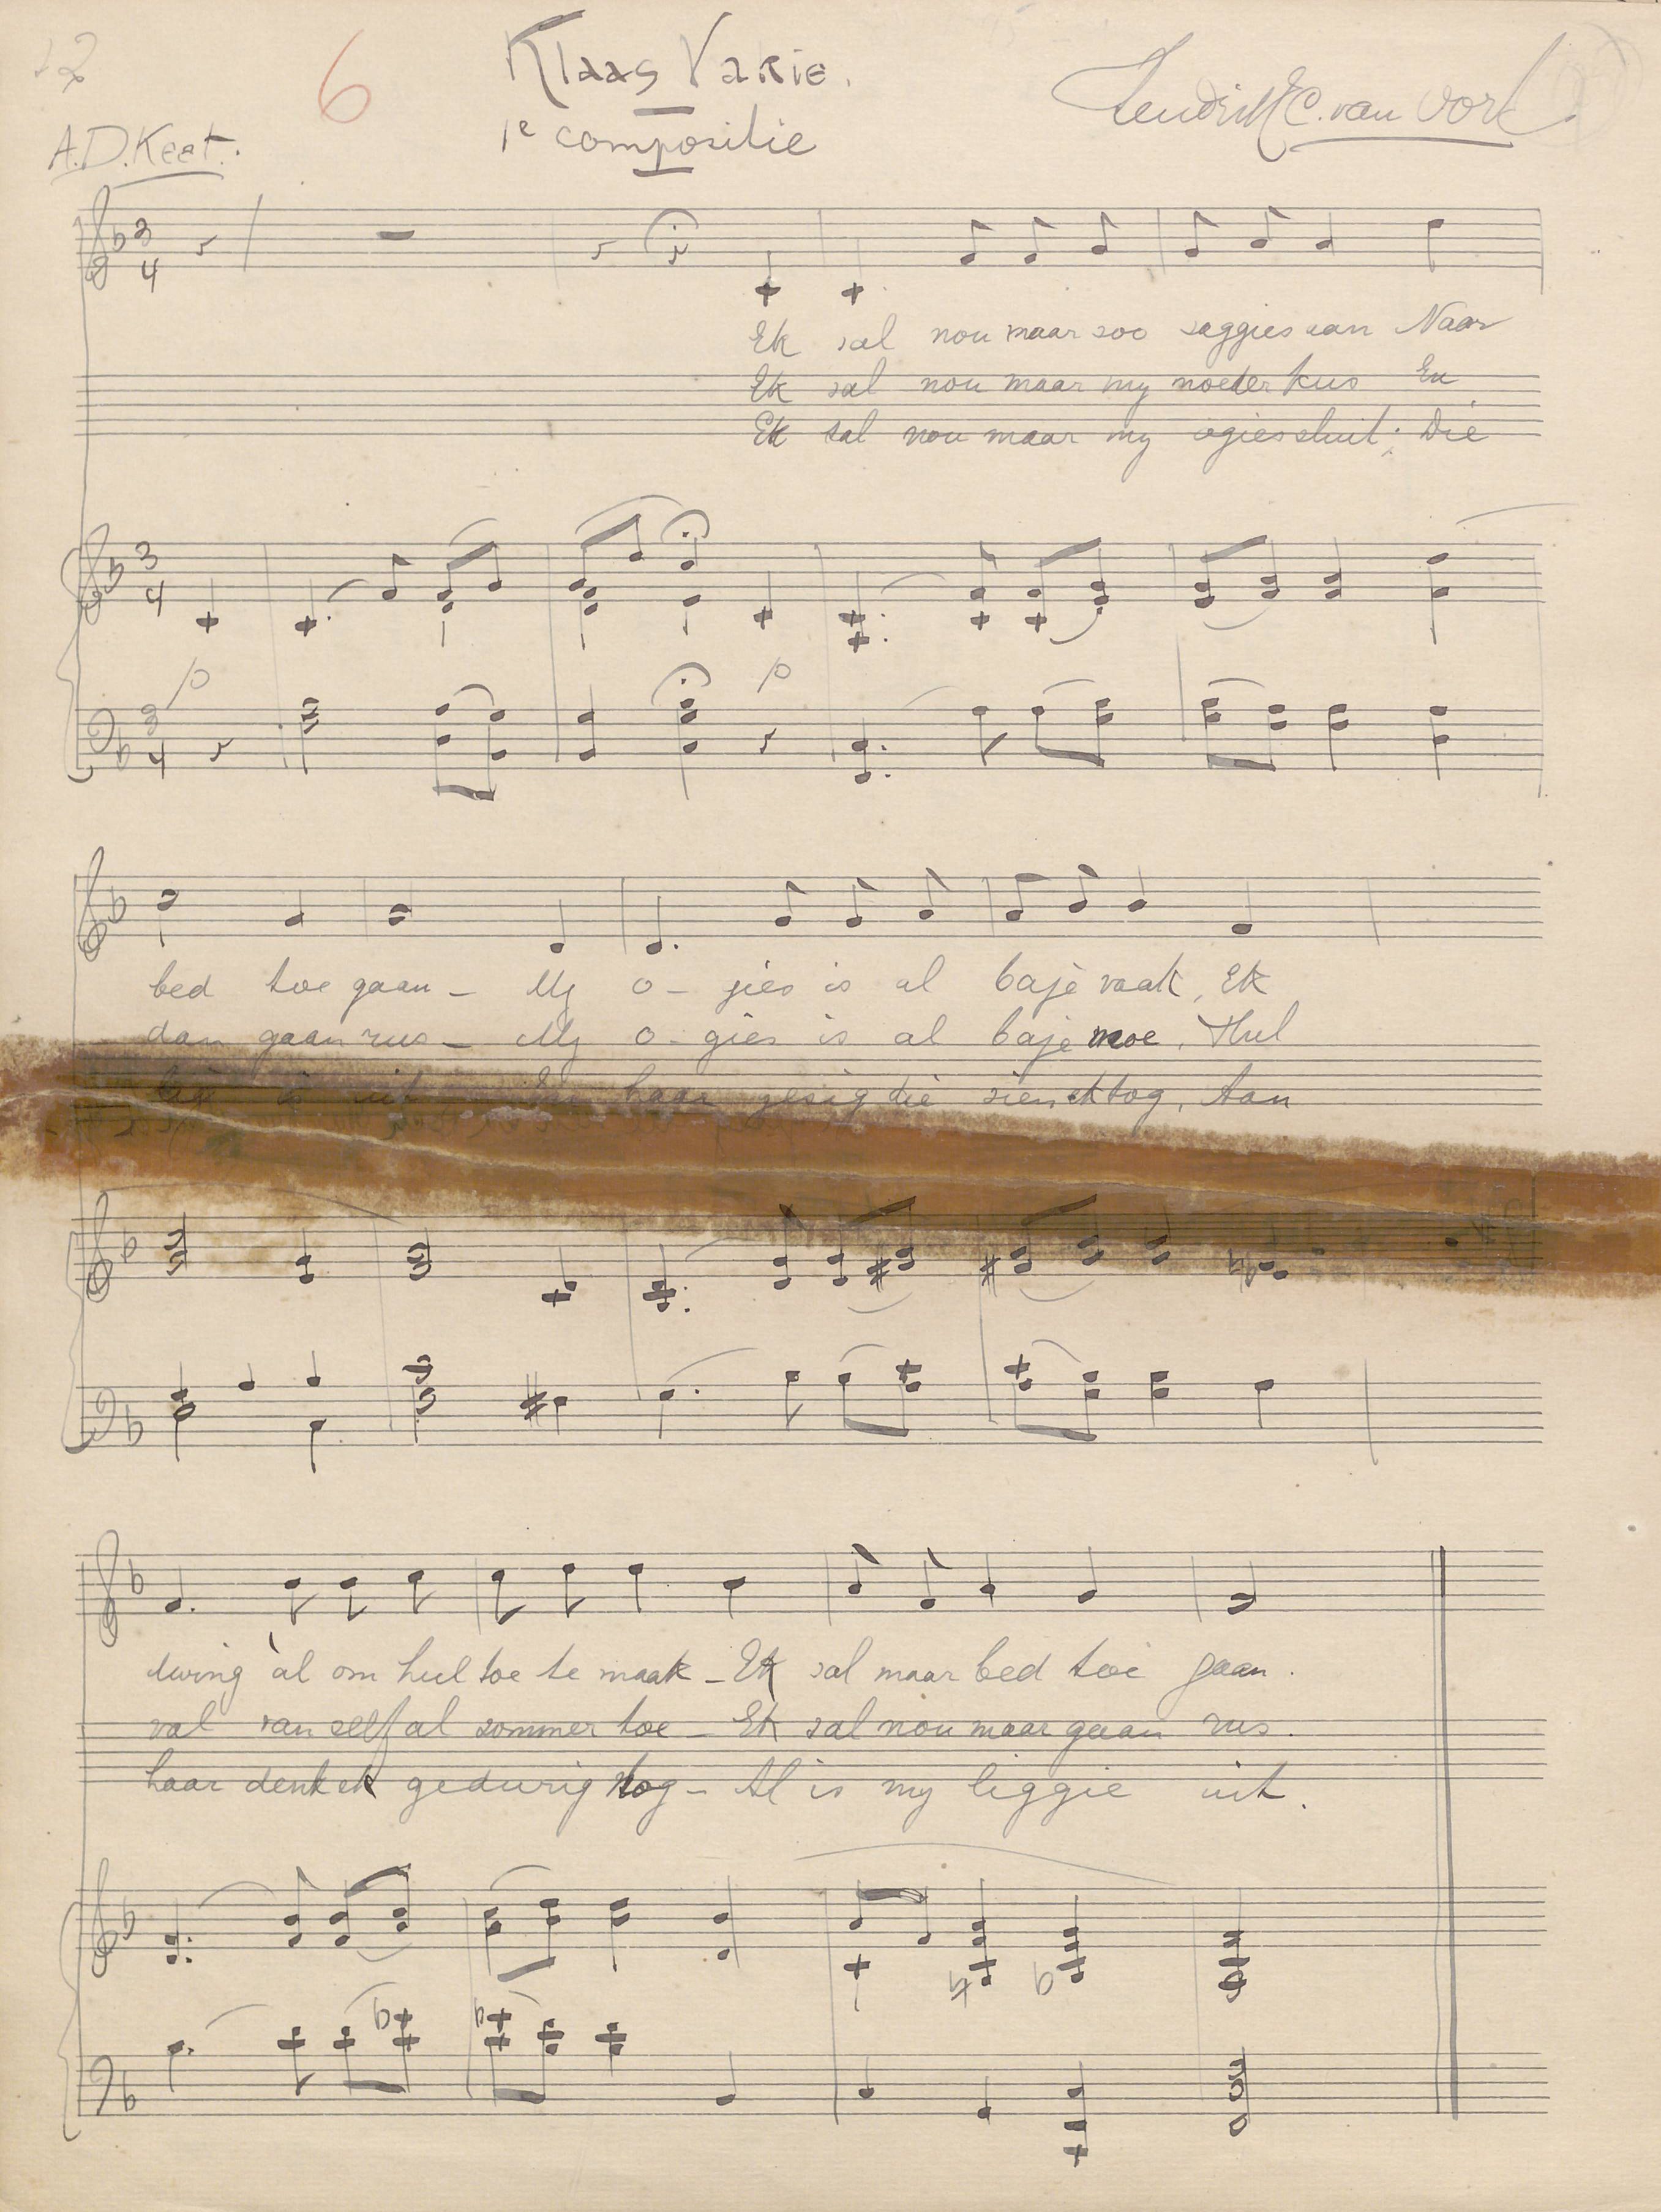 12
6
Klaas Vakie.
1e compositie
A.D. Keet.
Hendrik C. van Oort
3 4
Ek sal nou maar soo saggies aan Naar
Ek sal nou maar my moeder kus En
Ek sal nou maar my ogies sluit; Die
3 4
p p
3 4
bed toe gaan - My o - gies is al bajè vaak, Ek
dan gaan rus - My o - gies is al bajè moe. Hul
is uit haar gesig die sien ek tog, Aan
dwing àl om hul toe te maak - Ek sal maar bed toe gaan.
val van self al sommer toe - Ek sal nou maar gaan rus.
haar denk ek gedurig nog - Al is my liggie uit.